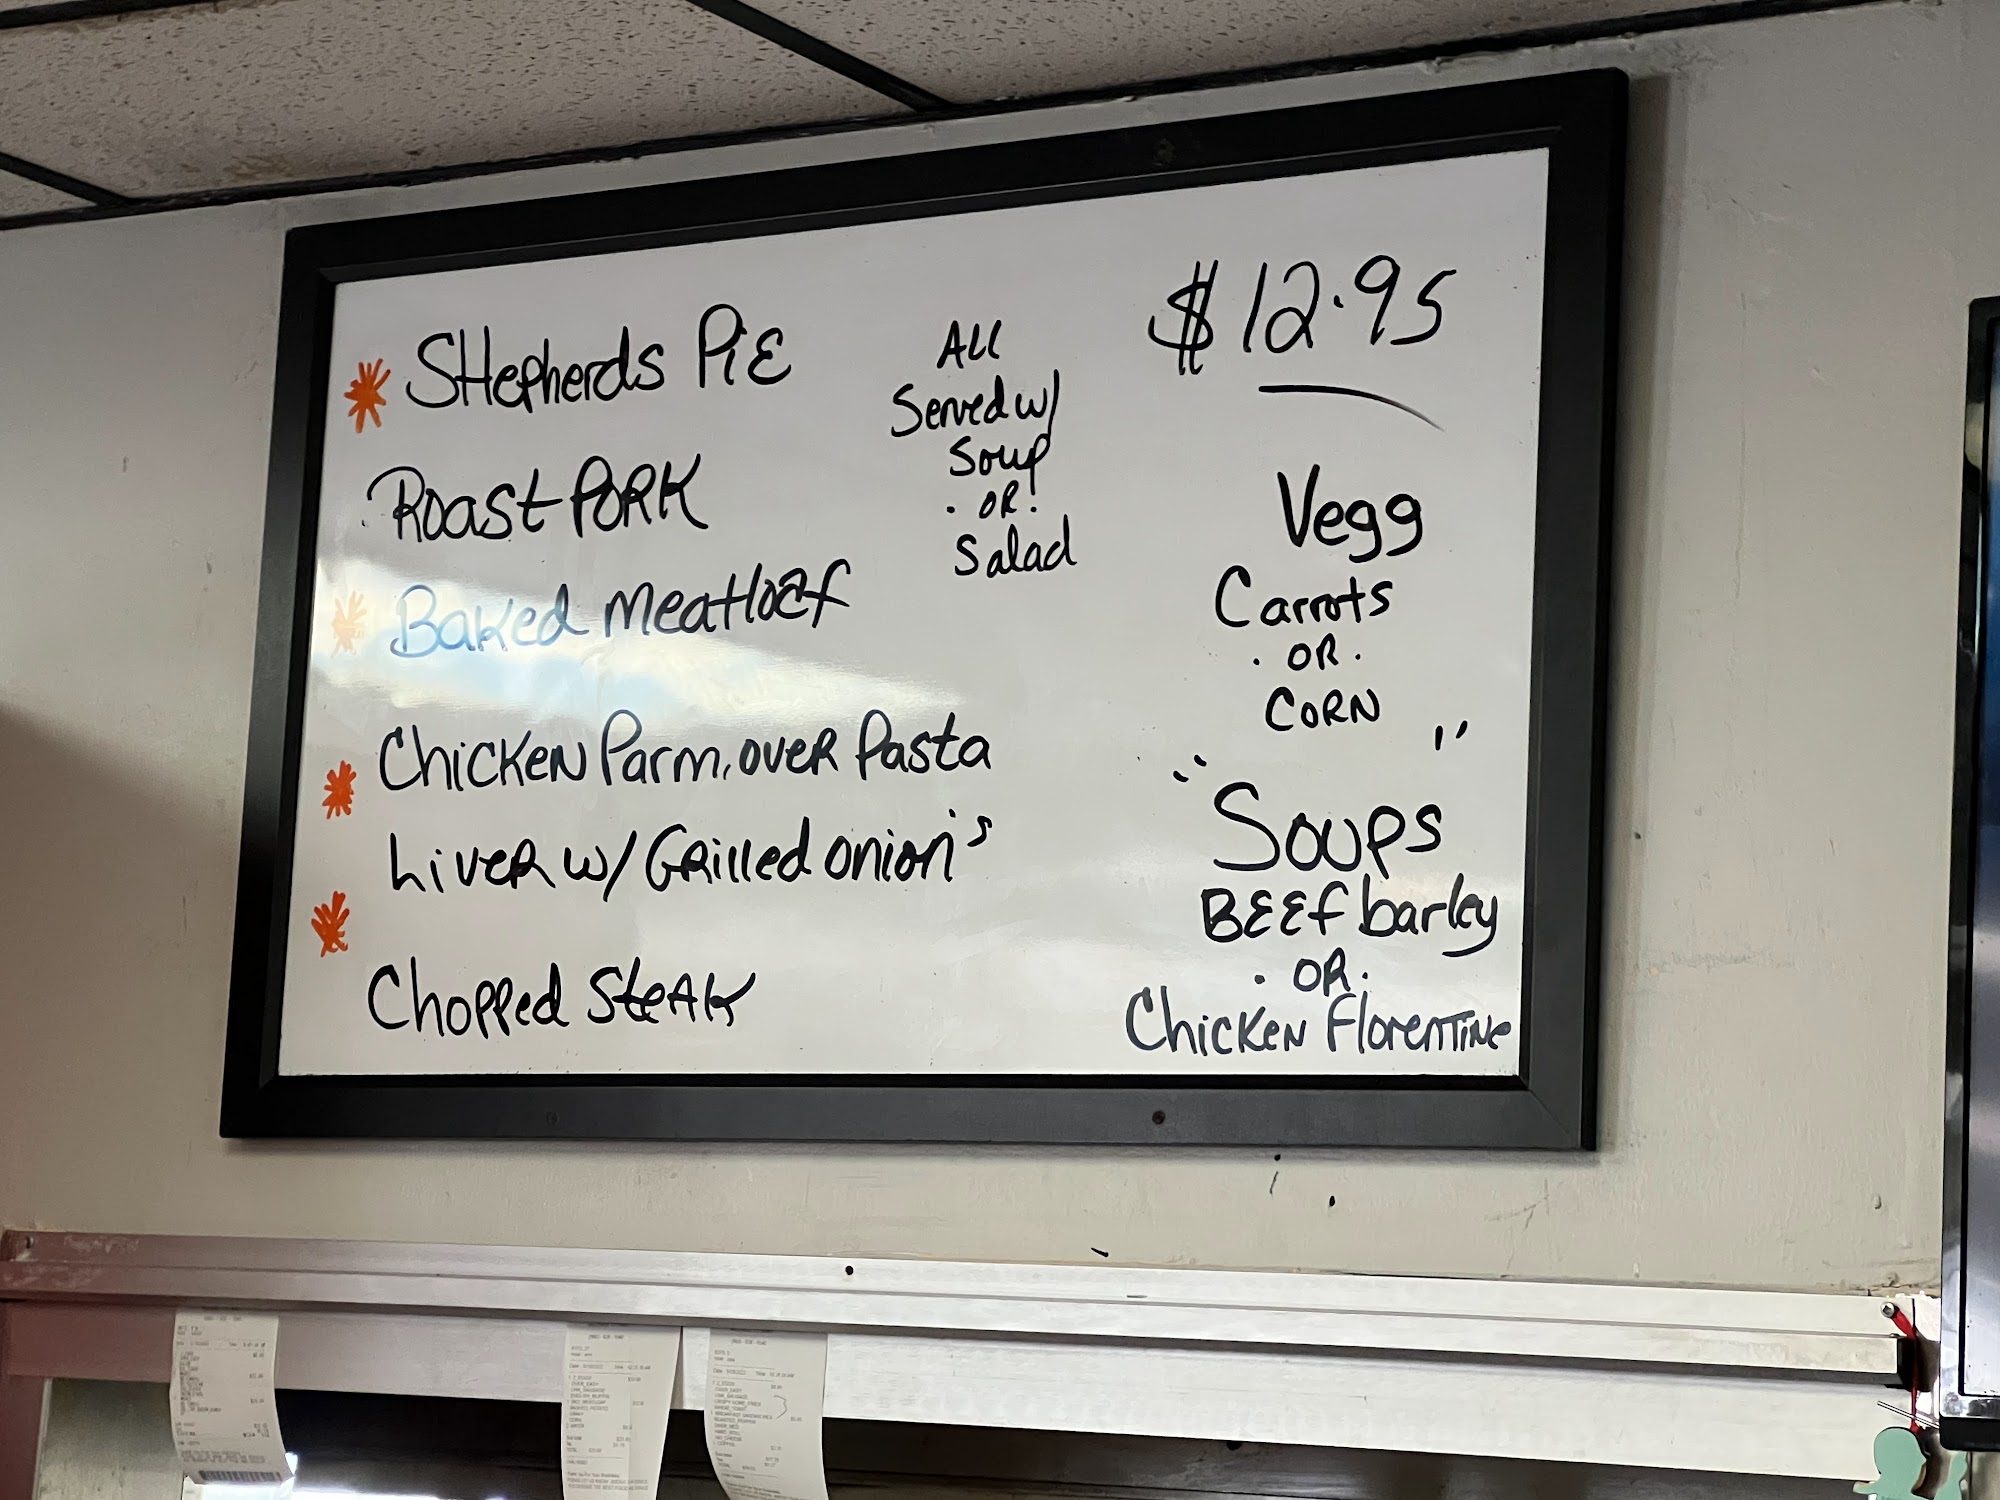 SHepherds PiE
Roast PORK
Baked meatloaf
Chicken Parm. over Pasta
Liver w/ Grilled onion's
Chopped Steak
All
Served w/
Soup
. OR .
Salad
$12.95
Vegg
Carrots
. OR .
CORN
"Soups"
BEEf barley
. OR .
Chicken Florentine